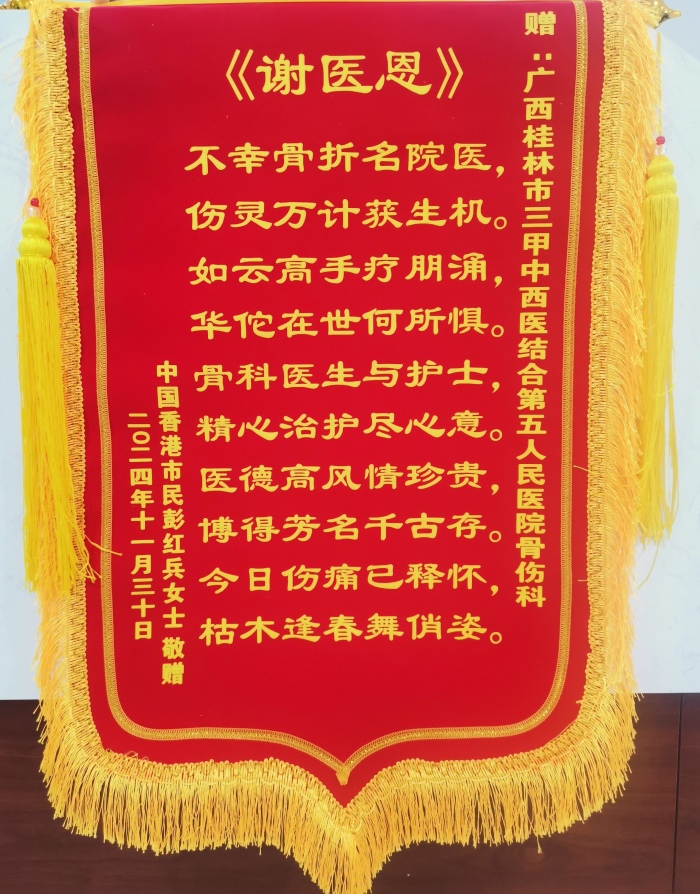 赠：广西桂林市三甲中西医结合第五人民医院骨伤科
《谢医恩》
不幸骨折名院医，
伤灵万计获生机。
如云高手疗朋涌，
华佗在世何所惧。
骨科医生与护士，
精心治护尽心意。
医德高风情珍贵，
博得芳名千古存。
今日伤痛已释怀，
枯木逢春舞俏姿。
中国香港市民彭红兵女士 敬赠
二〇二四年十一月三十日